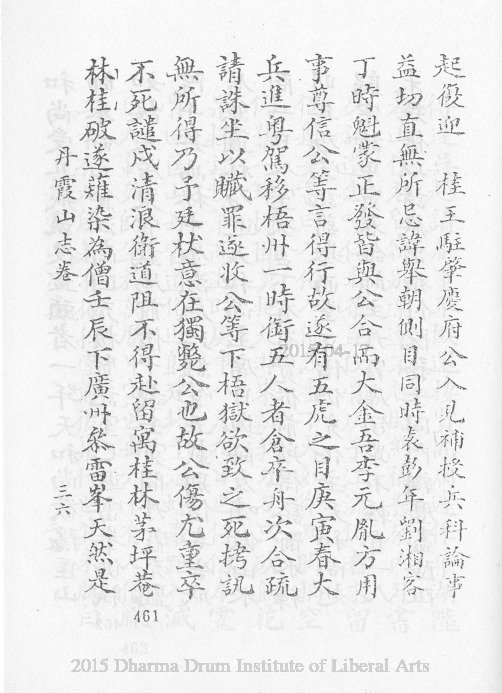 起復迎　桂王駐肇慶府公入見補授兵科論事
益切直無所忌諱舉朝側目同時袁彭年劉湘客
丁時魁蒙正發皆與公合而大金吾李元胤方用
事尊信公等言得行故遂有五虎之目庚寅春大
兵進粵駕移梧州一時銜五人者倉卒舟次合疏
請誅坐以贓罪逐收公等下梧獄欲致之死拷訊
無所得乃予廷杖意在獨斃公也故公傷尤重卒
不死譴戍清浪衛道阻不得赴留寓桂林茅坪菴
林桂破遂薙染為僧壬辰下廣州叅雷峯天然是
丹霞山志卷　三六
461
2015-04-17
2015 Dharma Drum Institute of Liberal Arts